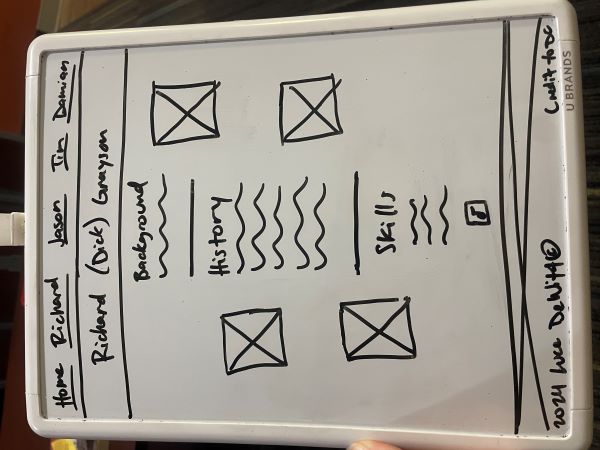 Home Richard Jason Tim Damian
Richard (Dick) Grayson
Background
History
Skills
2024 Luce DeWitt©
Credit to DC
U BRANDS